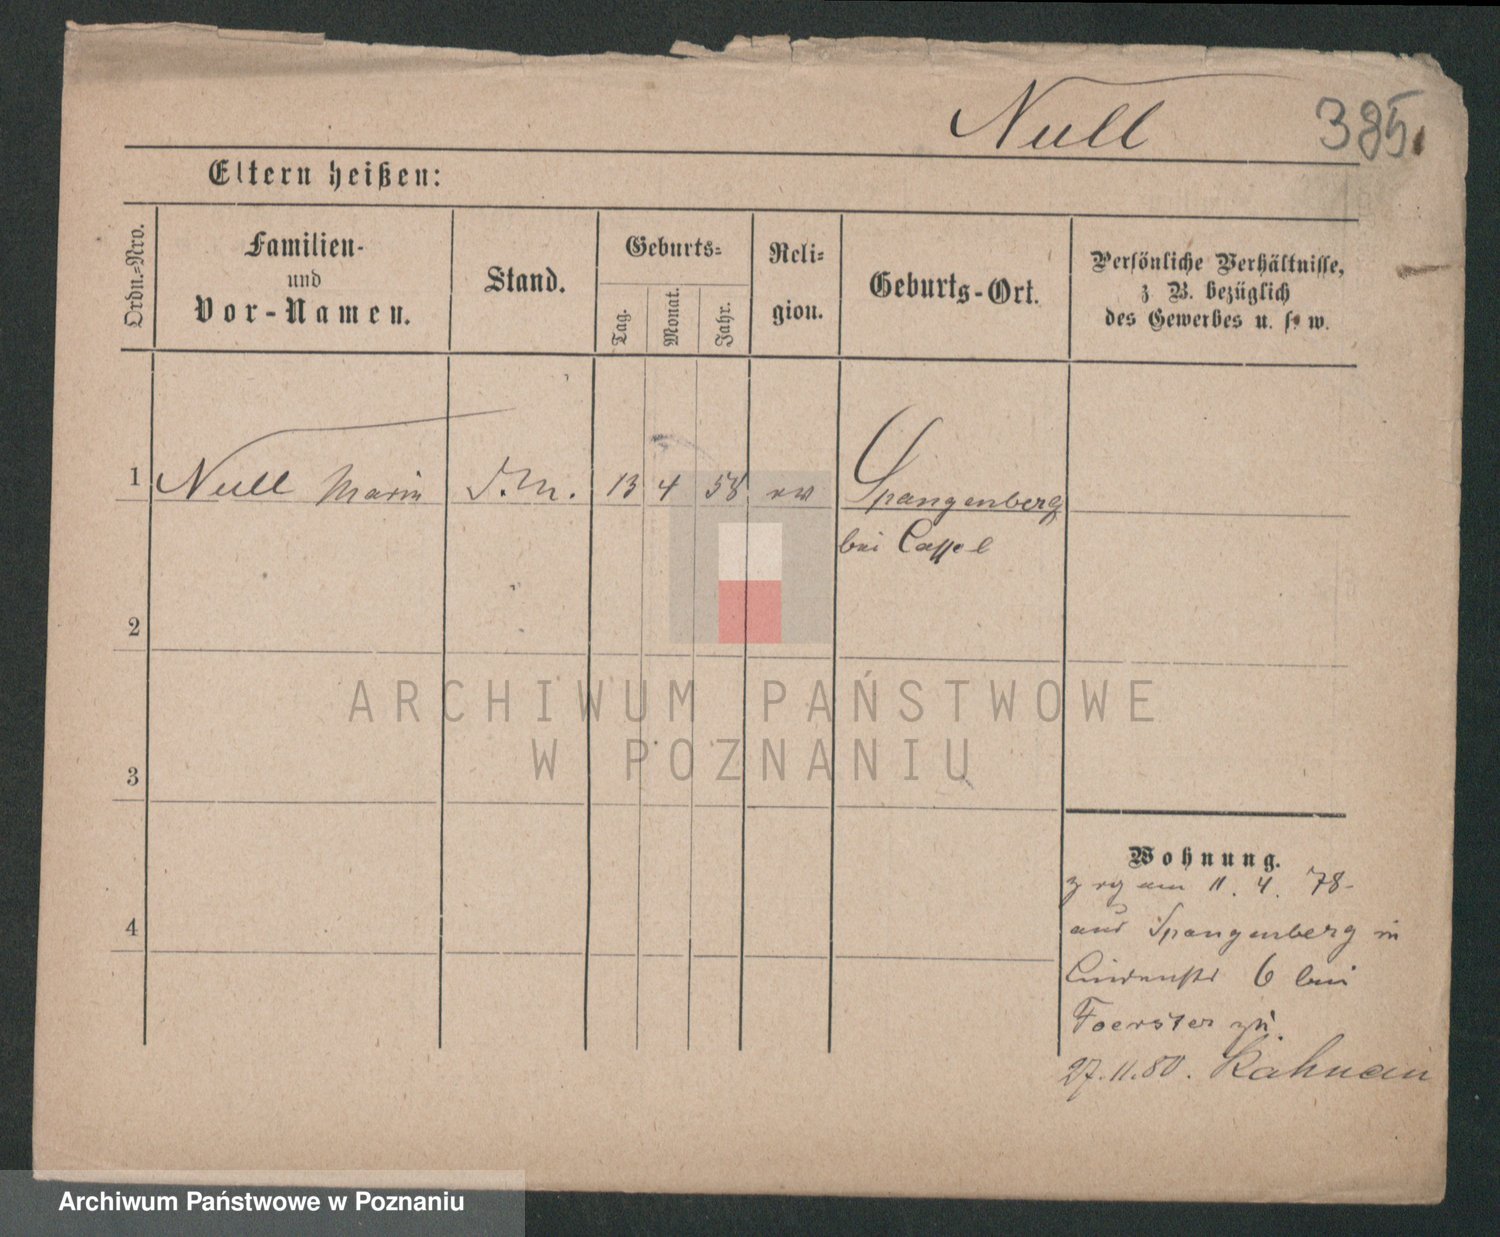 Null 385.
Eltern heißen:
Ordn.=Nro.
Familien-
und
Vor-Namen.
Stand.
Geburts=
Tag.
Monat.
Jahr.
Reli=
gion.
Geburts-Ort.
Persönliche Verhältnisse,
z B. bezüglich
des Gewerbes u. s. w.
1 Null Marie D.M. 13 4 58 ev Spangenberg
bei Cassel
2
3
4
Wohnung.
am 11. 4. 78-
aus Spangenberg in
Lindenstr 6 bei
Foerster zu
27.11.80.
ARCHIWUM PAŃSTWOWE
W POZNANIU
Archiwum Państwowe w Poznaniu